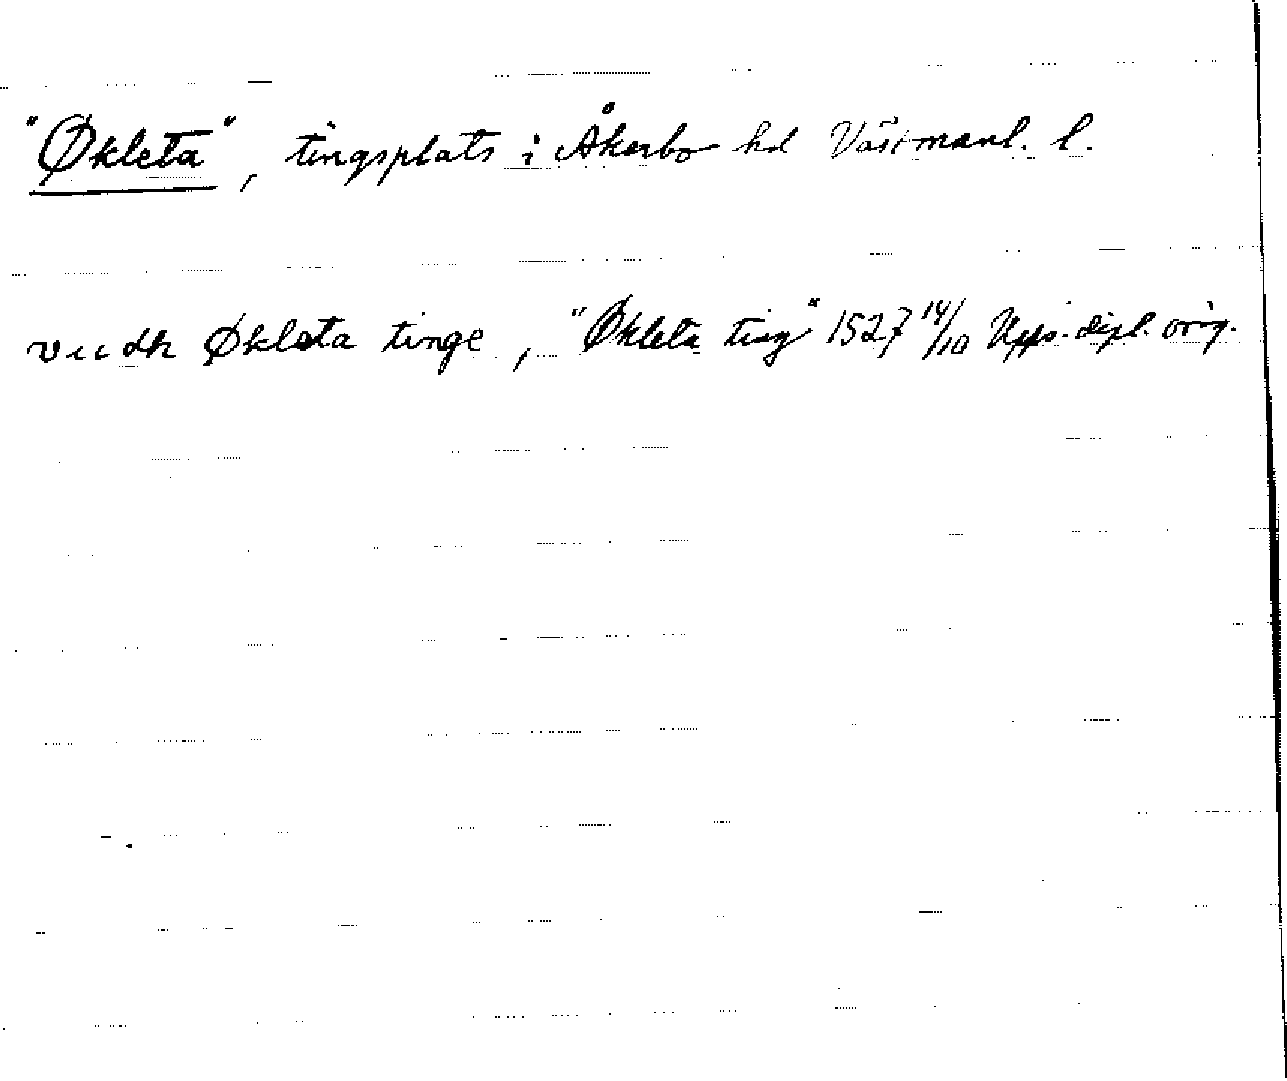 "Økleta", tingsplats i Åkerbo hd Västmanl. l.
viidh Økleta tinge, "Økleta ting" 1527 14/10 Upps. dipl. orig.